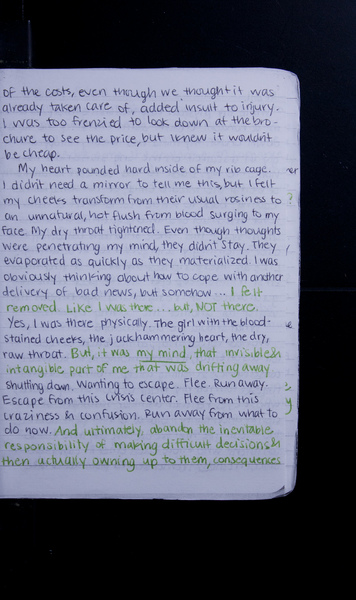 of the costs, even though we thought it was
already taken care of, added insult to injury.
I was too frenzied to look down at the bro-
chure to see the price, but I knew it wouldn't
be cheap.
My heart pounded hard inside of my rib cage.
I didn't need a mirror to tell me this, but I felt
my cheeks transform from their usual rosiness to
an unnatural, hot flush from blood surging to my
face. My dry throat tightened. Even though thoughts
were penetrating my mind, they didn't stay. They
evaporated as quickly as they materialized. I was
obviously thinking about how to cope with another
delivery of bad news, but somehow... I felt
removed. Like I was there... but, NOT there.
Yes, I was there physically. The girl with the blood-
stained cheeks, the jackhammering heart, the dry,
raw throat. But, it was my mind, that invisible &
intangible part of me that was drifting away.
Shutting down. Wanting to escape. Flee. Run away.
Escape from this crisis center. Flee from this
craziness & confusion. Run away from what to
do now. And ultimately, abandon the inevitable
responsibility of making difficult decisions &
then actually owning up to them, consequences